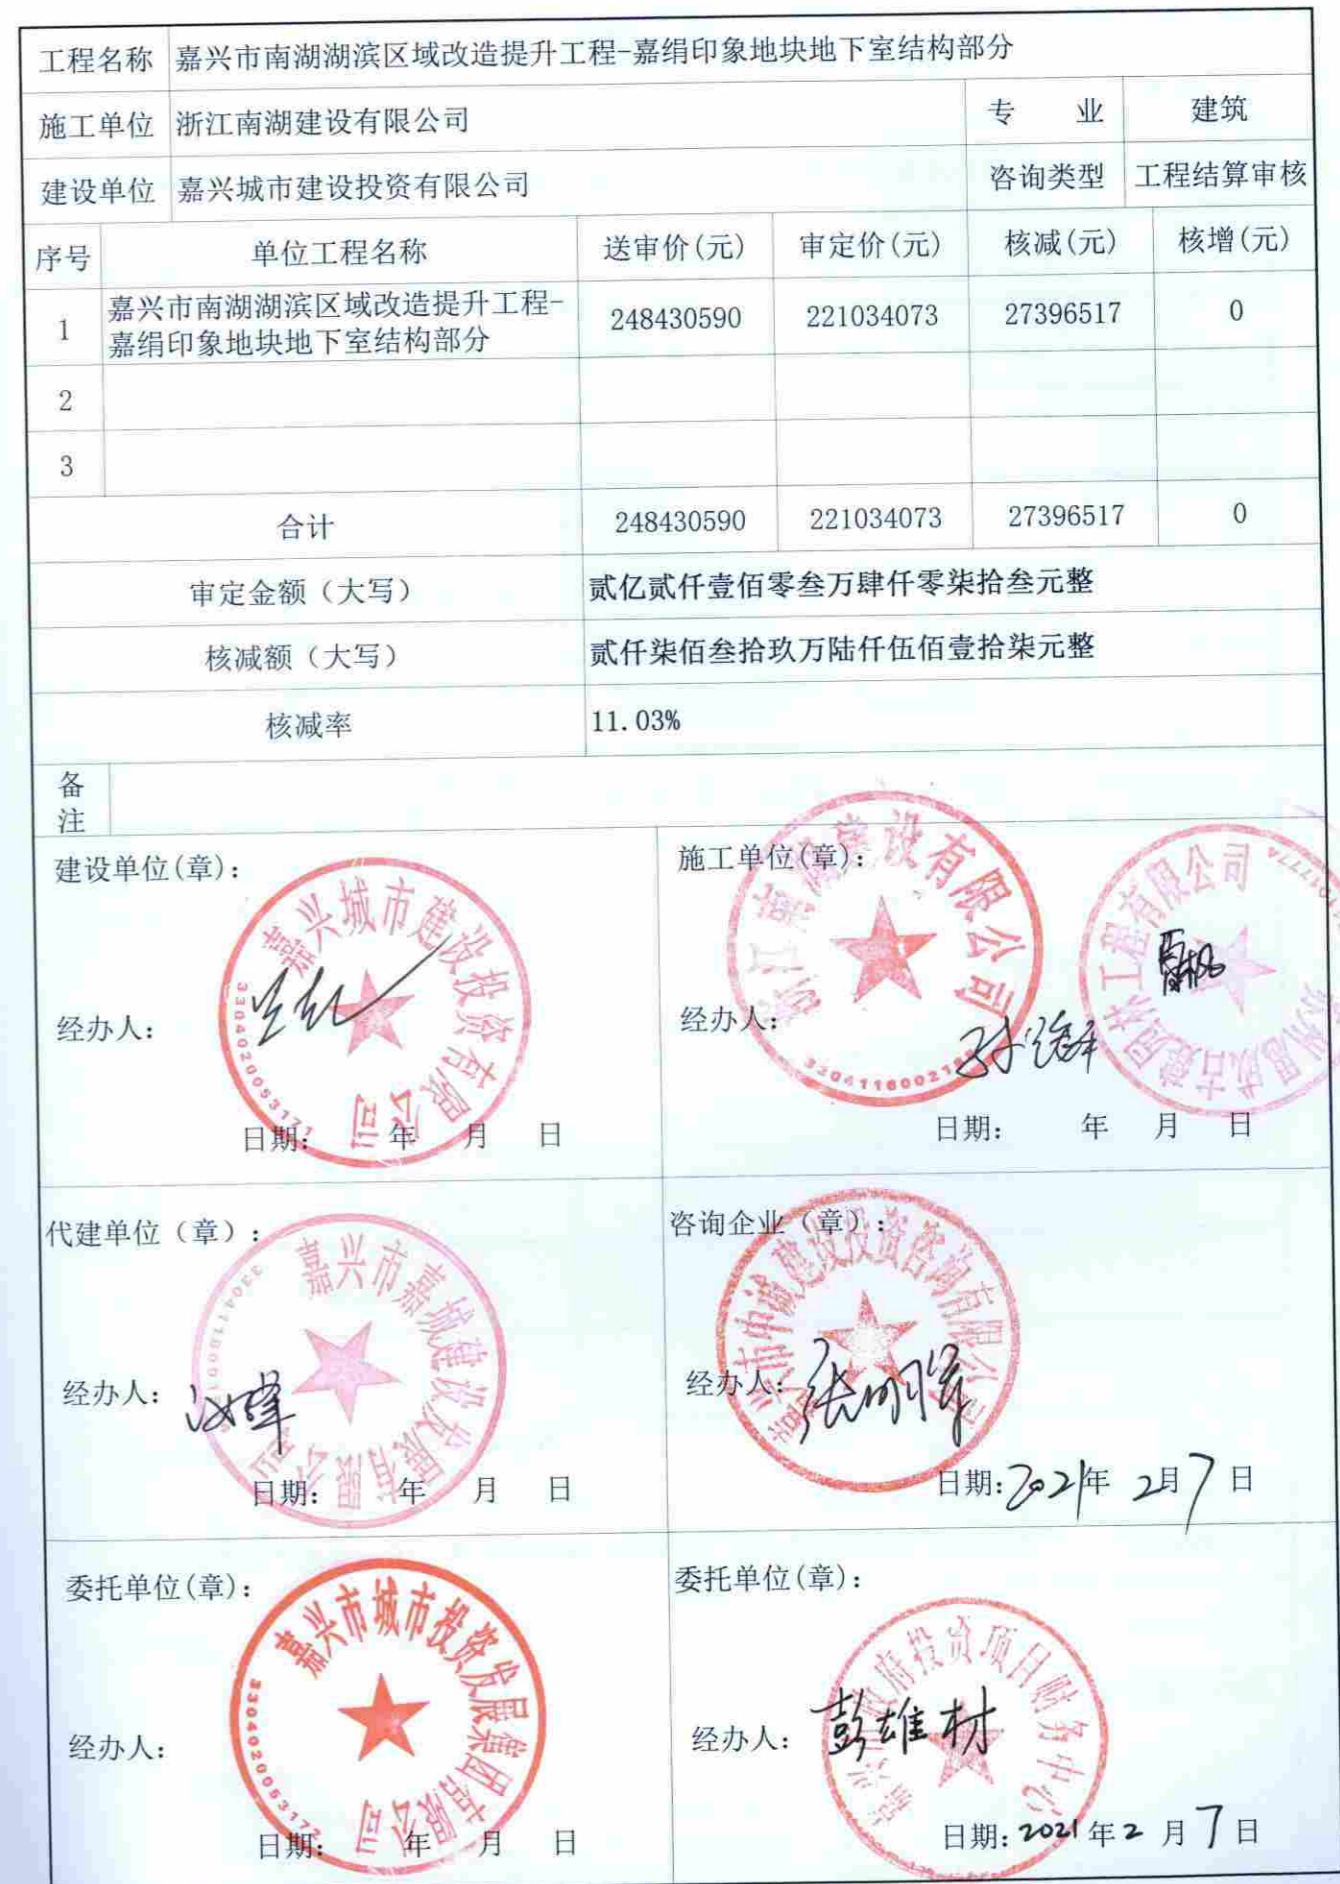 工程名称 嘉兴市南湖湖滨区域改造提升工程-嘉绢印象地块地下室结构部分
施工单位 浙江南湖建设有限公司 专 业 建筑
建设单位 嘉兴城市建设投资有限公司 咨询类型 工程结算审核
序号 单位工程名称 送审价(元) 审定价(元) 核减(元) 核增(元)
1 嘉兴市南湖湖滨区域改造提升工程- 248430590 221034073 27396517 0
嘉绢印象地块地下室结构部分
2
3
合计 248430590 221034073 27396517 0
审定金额（大写） 贰亿贰仟壹佰零叁万肆仟零柒拾叁元整
核减额（大写） 贰仟柒佰叁拾玖万陆仟伍佰壹拾柒元整
核减率 11.03%
备
注
建设单位(章):
嘉兴城市建设投资有限公司
经办人:
日期: 年 月 日
施工单位(章):
浙江南湖建设有限公司
经办人:
日期: 年 月 日
代建单位（章）:
嘉兴市嘉城建设发展有限公司
经办人:
日期: 年 月 日
咨询企业（章）:
嘉兴市中诚建设投资咨询有限公司
经办人: 张明辉
日期: 2021年 2月 7 日
委托单位(章):
嘉兴市城市投资发展集团有限公司
经办人:
日期: 年 月 日
委托单位(章):
嘉兴市政府投资项目财务中心
经办人: 彭雄材
日期: 2021年 2 月 7 日